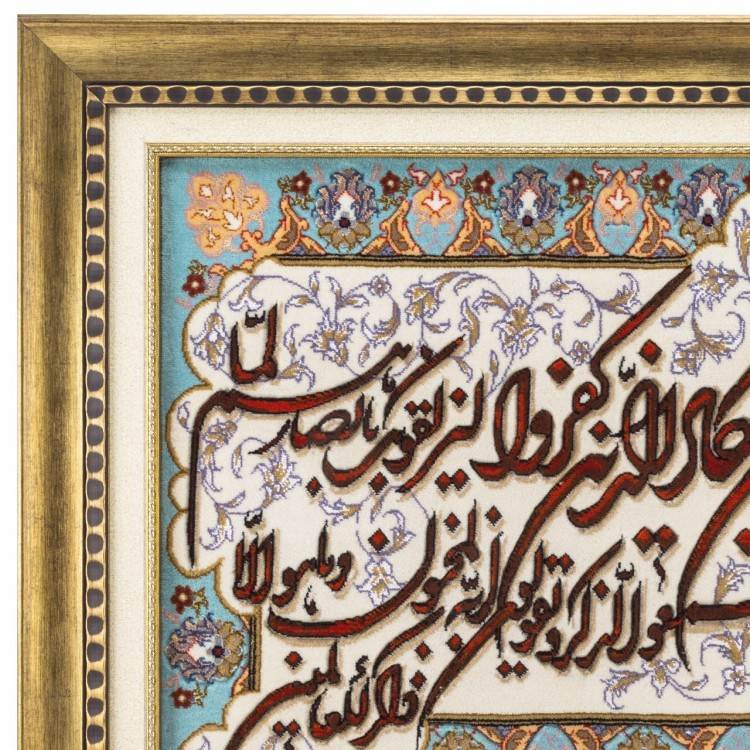 كاد الذين كفروا ليزلقونك بابصارهم لما
سمعوا الذكر و يقولون انه لمجنون وما هو الا
ذكر للعالمين